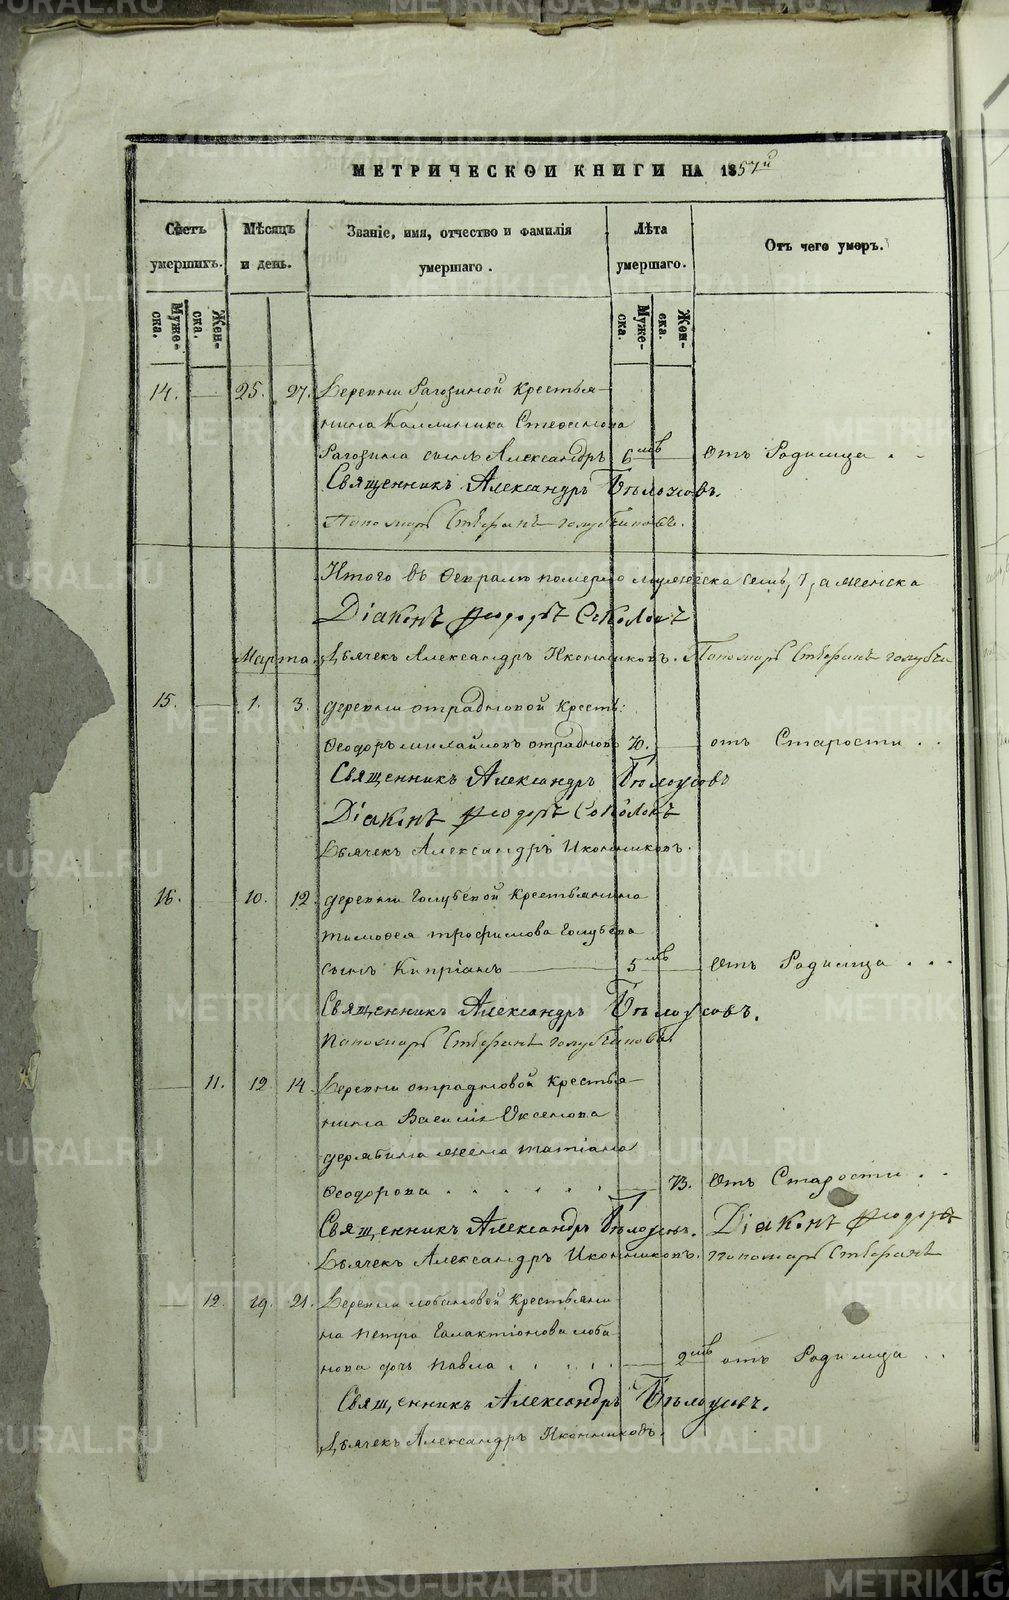 МЕТРИЧЕСКОЙ КНИГИ НА 1857й
Счетъ умершихъ.
Мѣсяцъ и день.
Званіе, имя, отчество и фамилія умершаго.
Лѣта умершаго.
Отъ чего умеръ.
Муже-ска.
Жен-ска.
Муже-ска.
Жен-ска.
14. 25. 27. Деревни Рагозиной Крестья-
нина Каллиника Стефанова
Рагозина сынъ Александръ 6 мѣ Отъ Родимца
Священникъ Александръ Бѣлоусовъ.
Пономарь Стефанъ Голубчиковъ.
Итого въ Февралѣ померло мужеска семь, 7, а женска
Діаконъ Ѳеодоръ Соколовъ
Марта. Дьячекъ Александръ Иконниковъ. Пономарь Стефанъ Голубчи
15. 1. 3. деревни Отрадновой Кресть:
Ѳеодоръ Михайловъ Отрадновъ 70. отъ Старости
Священникъ Александръ Бѣлоусовъ
Діаконъ Ѳеодоръ Соколовъ
Дьячекъ Александръ Иконниковъ.
16. 10. 12. деревни Голубевой Крестьянина
Тимоѳея Трофимова Голубева
сынъ Кипріанъ 5 мѣ Отъ Родимца
Священникъ Александръ Бѣлоусовъ.
Пономарь Стефанъ Голубчиковъ
11. 12. 14. Деревни Отрадновой Крестья-
нина Василія Оксенова
Дерябина жена Татіана
Ѳеодорова 73. Отъ Старости
Священникъ Александръ Бѣлоусовъ. Діаконъ Ѳеодоръ
Дьячекъ Александръ Иконниковъ. пономарь Стефанъ
12. 19. 21. Деревни Лобановой Крестьяни-
на Петра Галактіонова Лоба-
нова дочь Павла 2 мѣ отъ Родимца
Священникъ Александръ Бѣлоусовъ.
Дьячекъ Александръ Иконниковъ.
METRIKI.GASO-URAL.RU